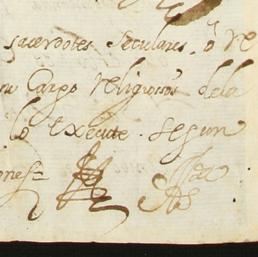 sacerdotes seculares, ô re
su Cargo religiosos dela
lo execute. segun
ones=